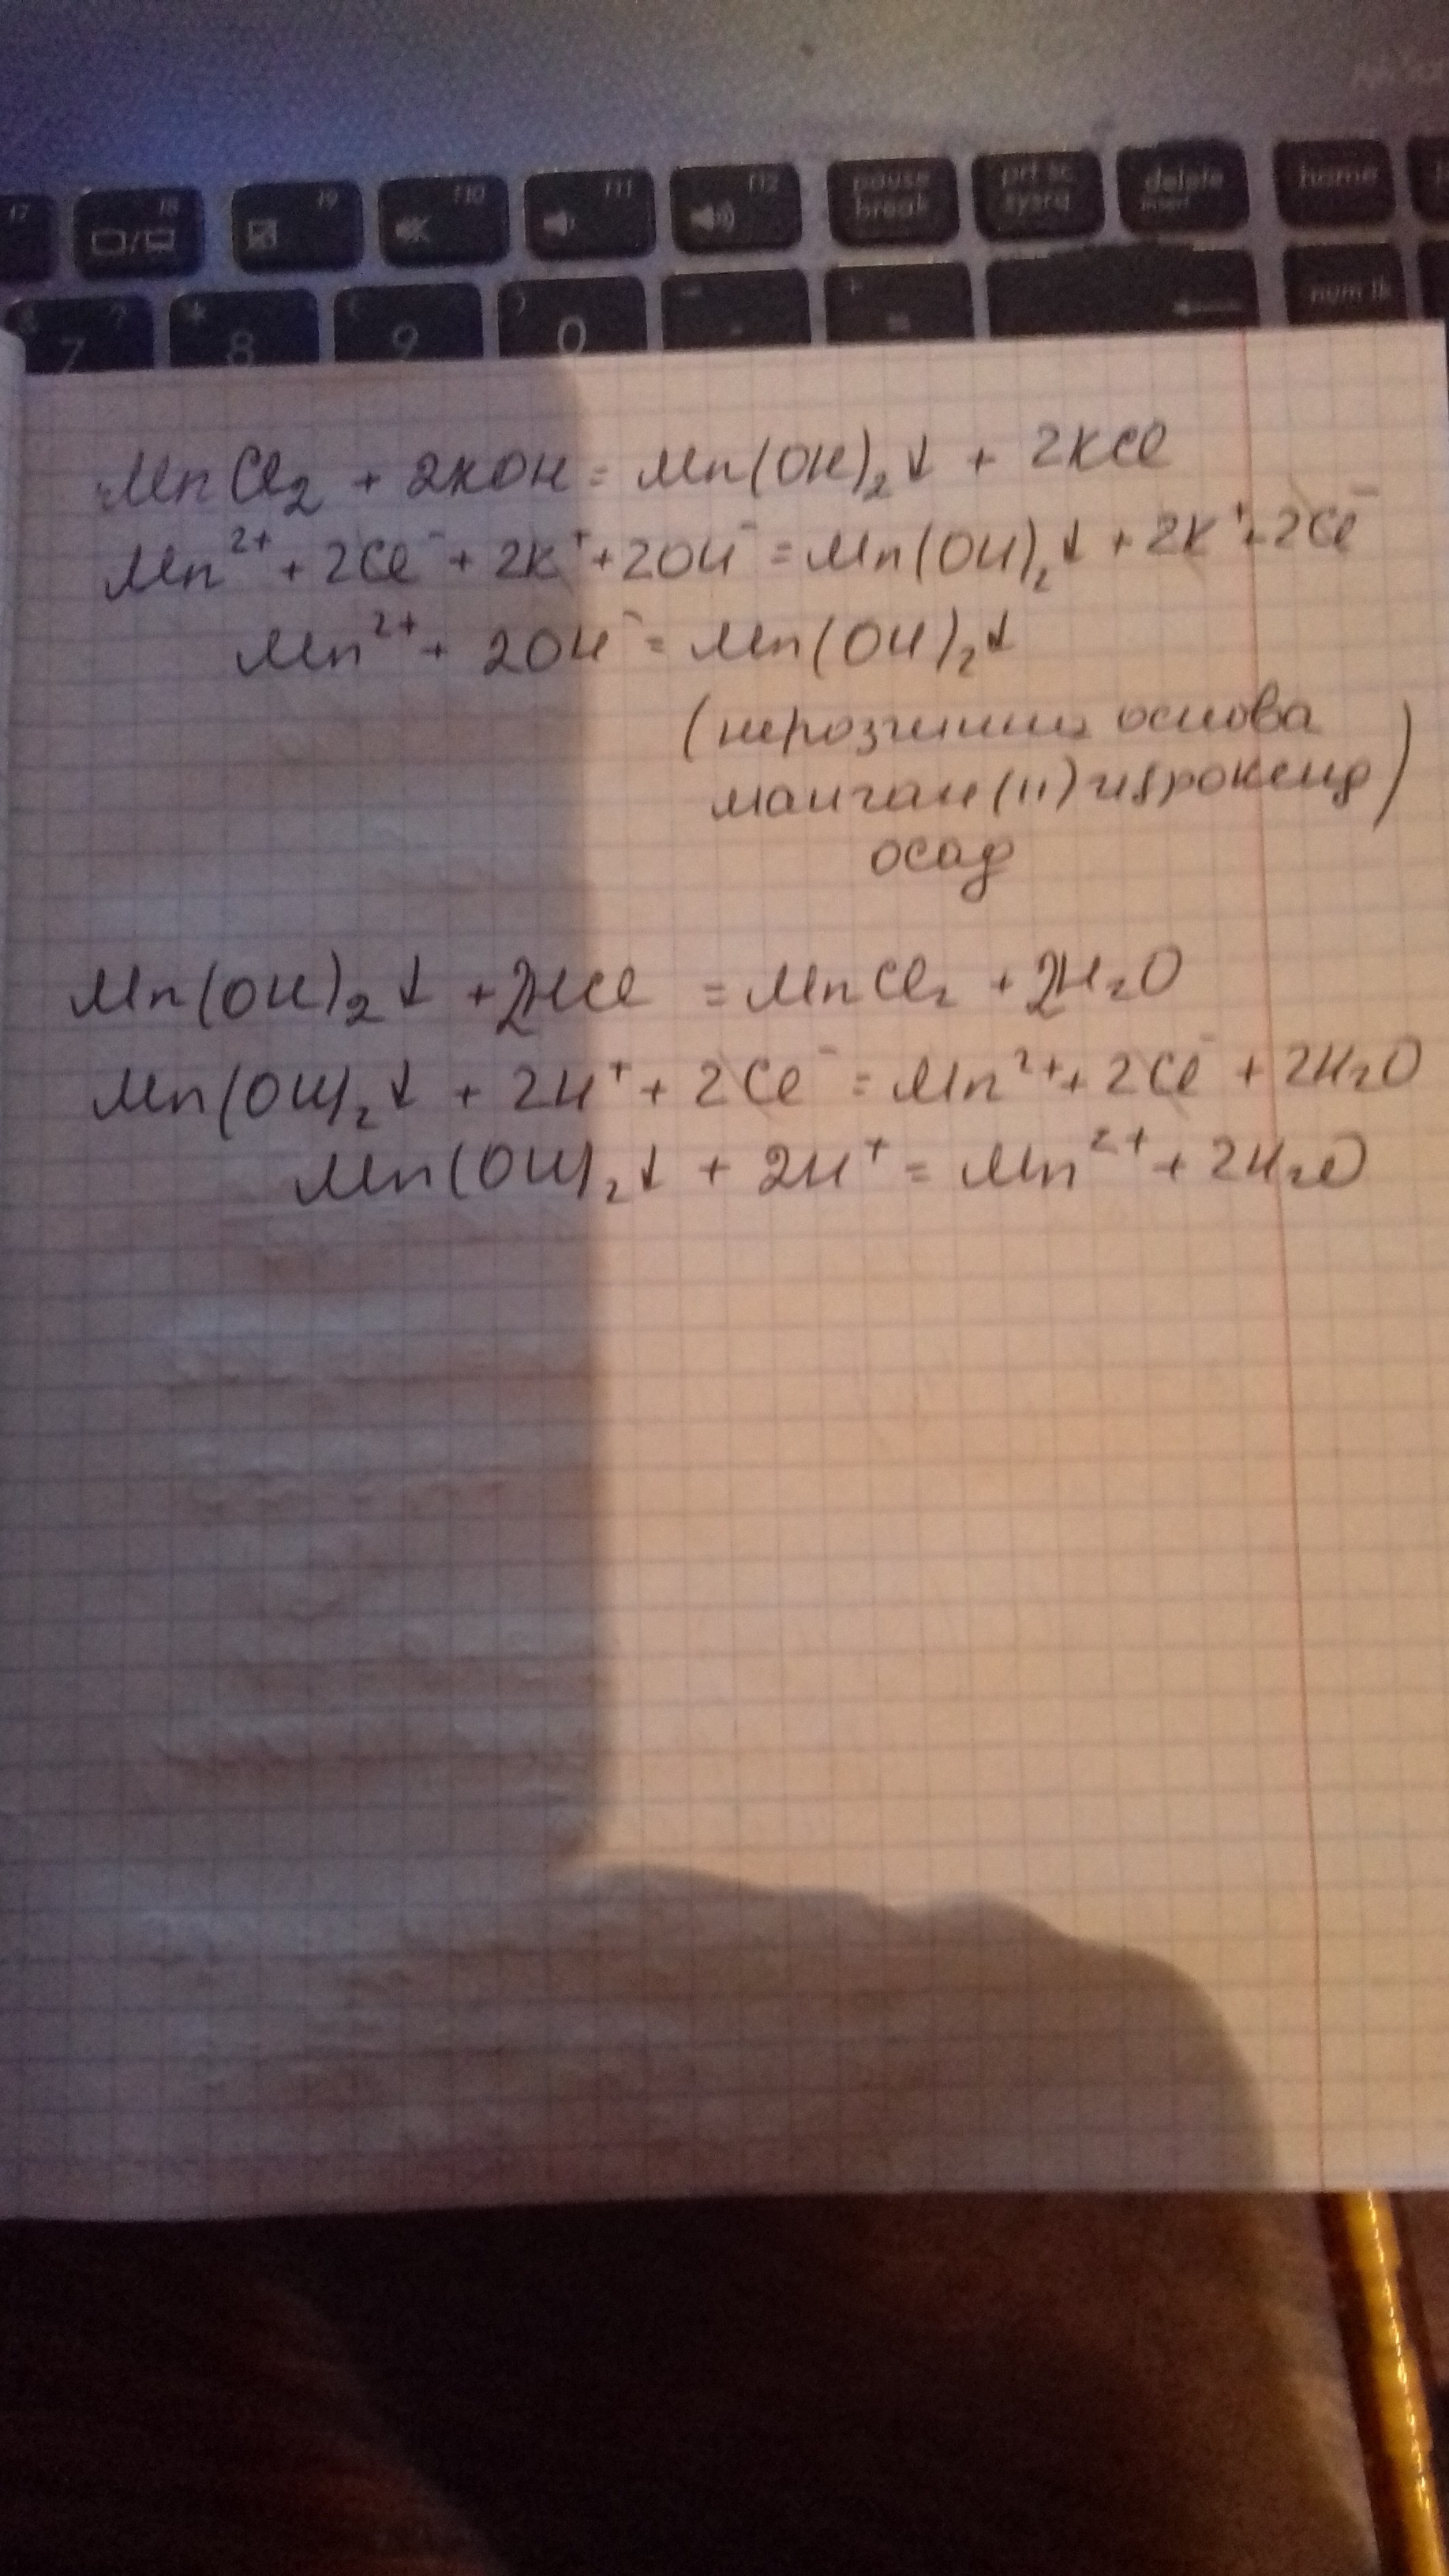 f7 f8 f9 f10 f11 f12 pause break prt sc sysrq delete insert home
7 8 9 0 num lk
MnCl₂ + 2KOH = Mn(OH)₂↓ + 2KCl
Mn²⁺ + 2Cl⁻ + 2K⁺ + 2OH⁻ = Mn(OH)₂↓ + 2K⁺ + 2Cl⁻
Mn²⁺ + 2OH⁻ = Mn(OH)₂↓
(нерозчинна основа
манган(II) гідроксид)
осад
Mn(OH)₂↓ + 2HCl = MnCl₂ + 2H₂O
Mn(OH)₂↓ + 2H⁺ + 2Cl⁻ = Mn²⁺ + 2Cl⁻ + 2H₂O
Mn(OH)₂↓ + 2H⁺ = Mn²⁺ + 2H₂O